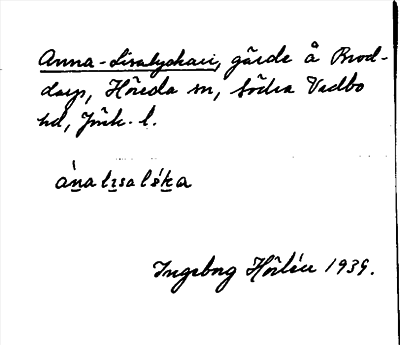 Anna-Lisalyckan, gärde å Brod-
darp, Höreda sn, Södra Vedbo
hd, Jönk. l.
ànalɪsalʹk̲a
Ingeborg Hörlén 1939.